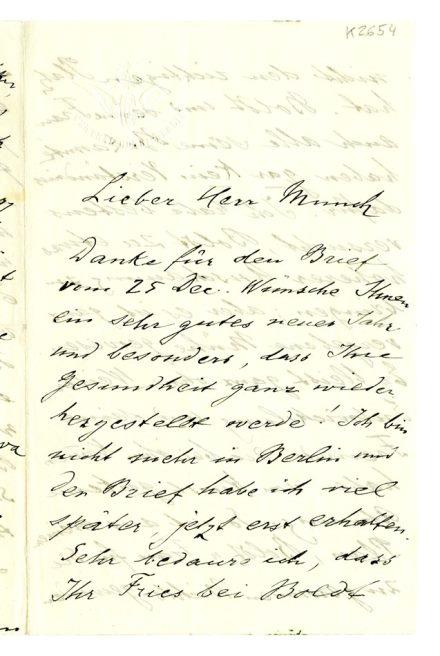 K2654
Lieber Herr Munch
Danke für den Brief
vom 25 Dec. Wünsche Ihnen
ein sehr gutes neues Jahr
und besonders, dass Ihre
Gesundheit ganz wieder
hergestellt werde! Ich bin
nicht mehr in Berlin und
den Brief habe ich viel
später jetzt erst erhalten.
Sehr bedaure ich, dass
Ihr Fries bei Boldt